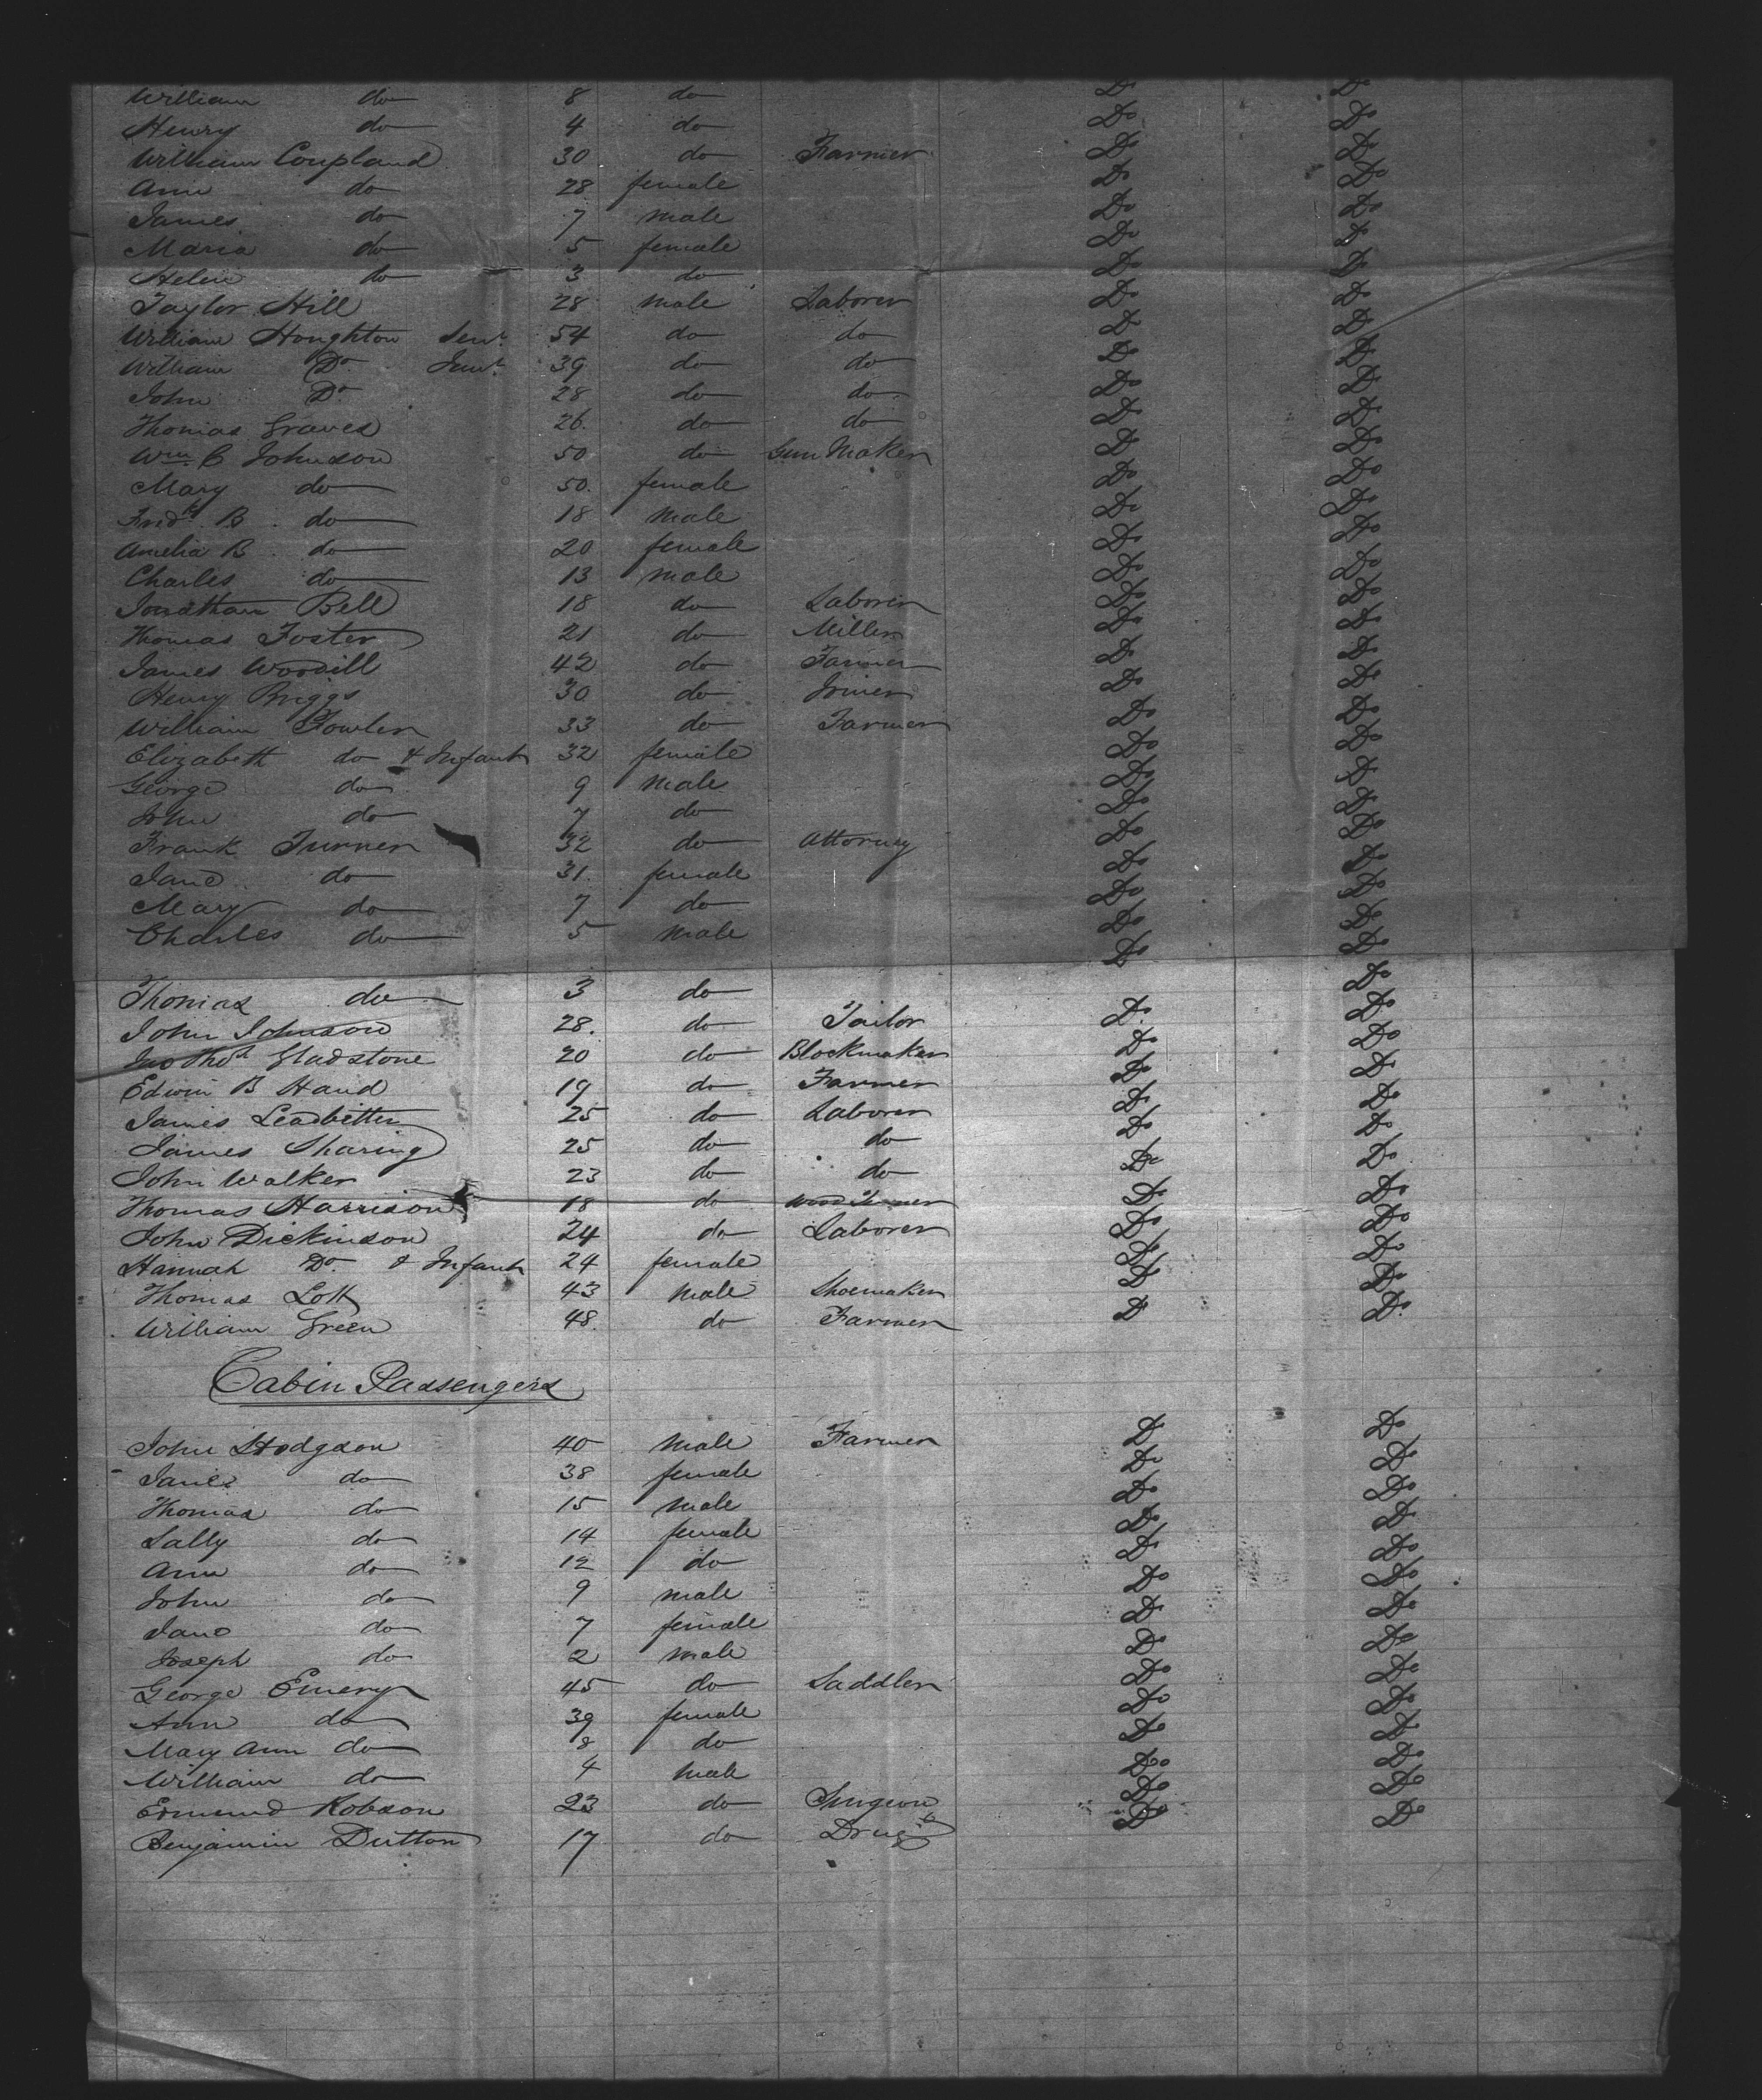 William do 8 do Do Do
Henry do 4 do Do Do
William Coupland 30 do Farmer Do Do
Ann do 28 female Do Do
James do 7 male Do Do
Maria do 5 female Do Do
Helen do 3 do Do Do
Taylor Hill 28 male Laborer Do Do
William Houghton Senr. 54 do do Do Do
William Do. Junr. 39 do do Do Do
John Do 28 do do Do Do
Thomas Graves 26. do do Do Do
Wm. B Johnson 50 do Gun Maker Do Do
Mary do 50. female Do Do
Fredk. B. do 18 male Do Do
Amelia B. do 20 female Do Do
Charles do 13 male Do Do
Jonathan Bell 18 do Laborer Do Do
Thomas Foster 21 do Miller Do Do
James Woodill 42 do Farmer Do Do
Henry Briggs 30 do Joiner Do Do
William Fowler 33 do Farmer Do Do
Elizabeth do & Infant 32 female Do Do
George do 9 male Do Do
John do 7 do Do Do
Frank Turner 32 do Attorney Do Do
Jane do 31. female Do Do
Mary do 7 do Do Do
Charles do 5 male Do Do
Thomas do 3 do Do Do
John Johnson 28. do Tailor Do Do
Jno Thos Gladstone 20 do Blockmaker Do Do
Edwin B Hand 19 do Farmer Do Do
James Leadbitter 25 do Laborer Do Do
James Sharing 25 do do Do Do
John Walker 23 do do Do Do
Thomas Harrison 18 do Wood Turner Do Do
John Dickinson 24 do Laborer Do Do
Hannah Do. & Infant 24 female Do Do
Thomas Lott 43 male Shoemaker Do Do
William Green 48. do Farmer Do Do
Cabin Passengers
John Hodgson 40 male Farmer Do Do
Jane do 38 female Do Do
Thomas do 15 male Do Do
Sally do 14 female Do Do
Ann do 12 do Do Do
John do 9 male Do Do
Jane do 7 female Do Do
Joseph do 2 male Do Do
George Emery 45 do Saddler Do Do
Ann do 39 female Do Do
Mary Ann do 8 do Do Do
William do 4 male Do Do
Edmund Robson 23 do Surgeon Do Do
Benjamin Dutton 17 do Drugt Do Do